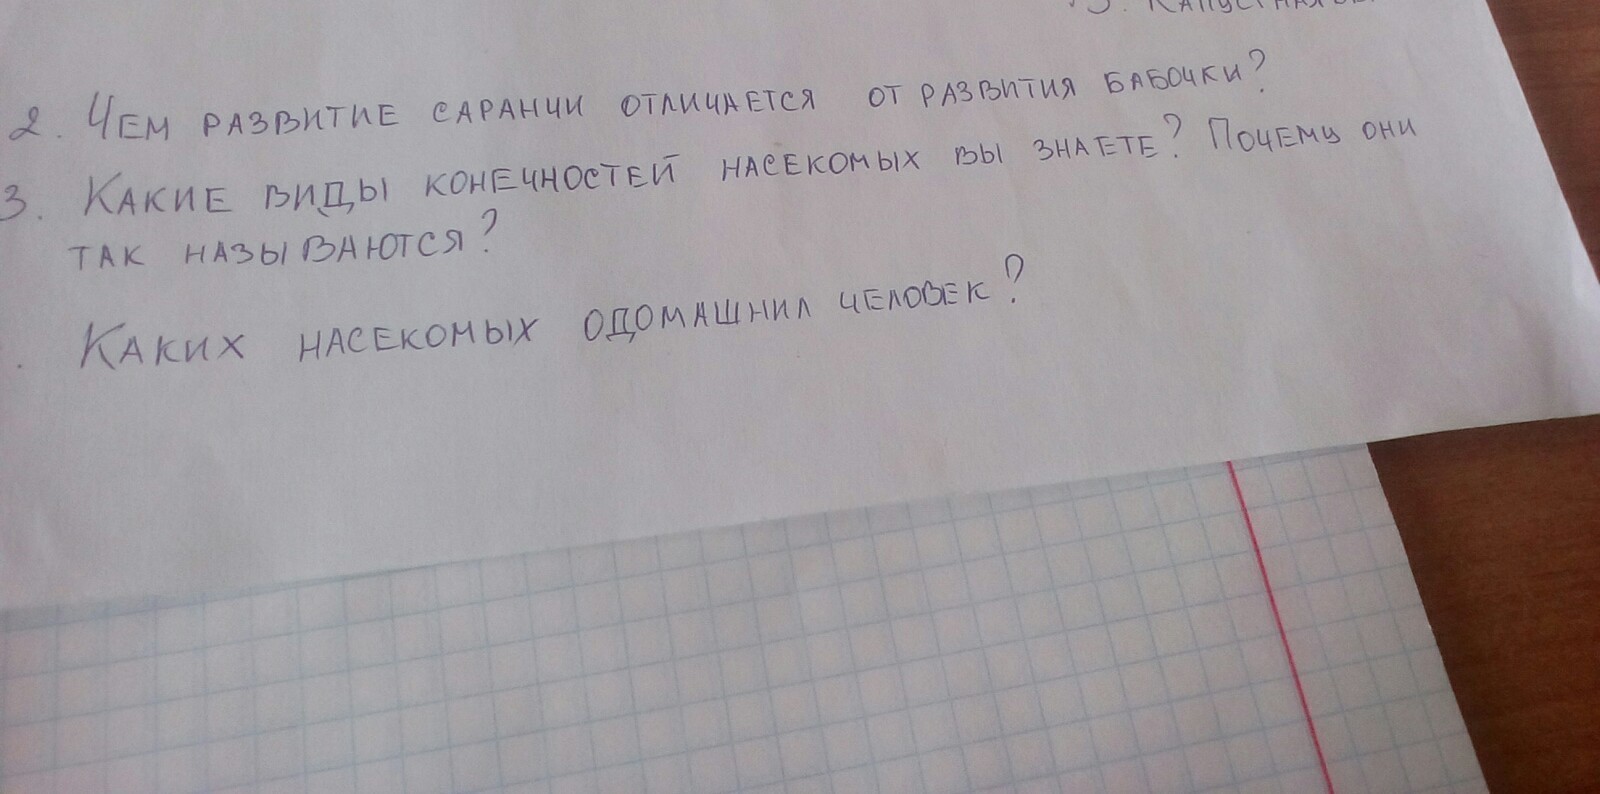 2. Чем развитие саранчи отличается от развития бабочки?
3. Какие виды конечностей насекомых вы знаете? Почему они
так называются?
. Каких насекомых одомашнил человек?